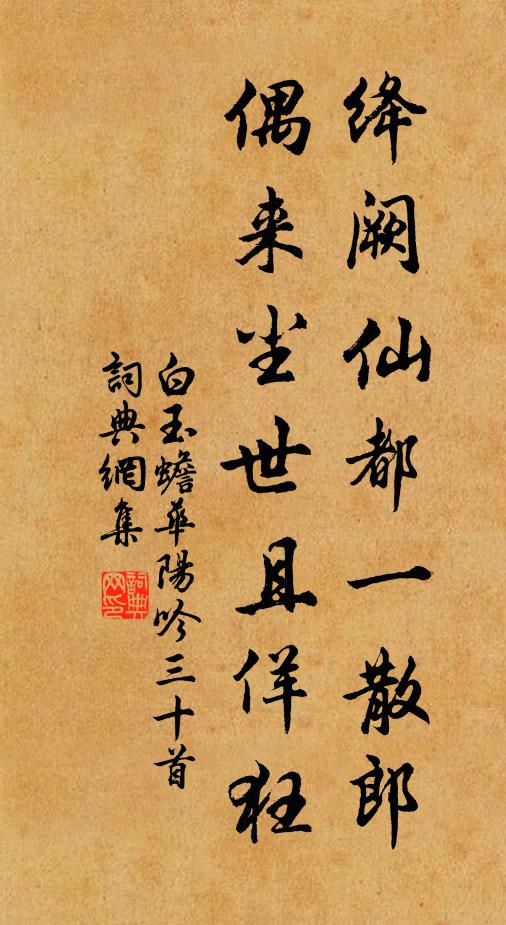 绛阙仙都一散郎
偶来尘世且佯狂
白玉蟾华陽吟三十首
詞典網集
詞典网印